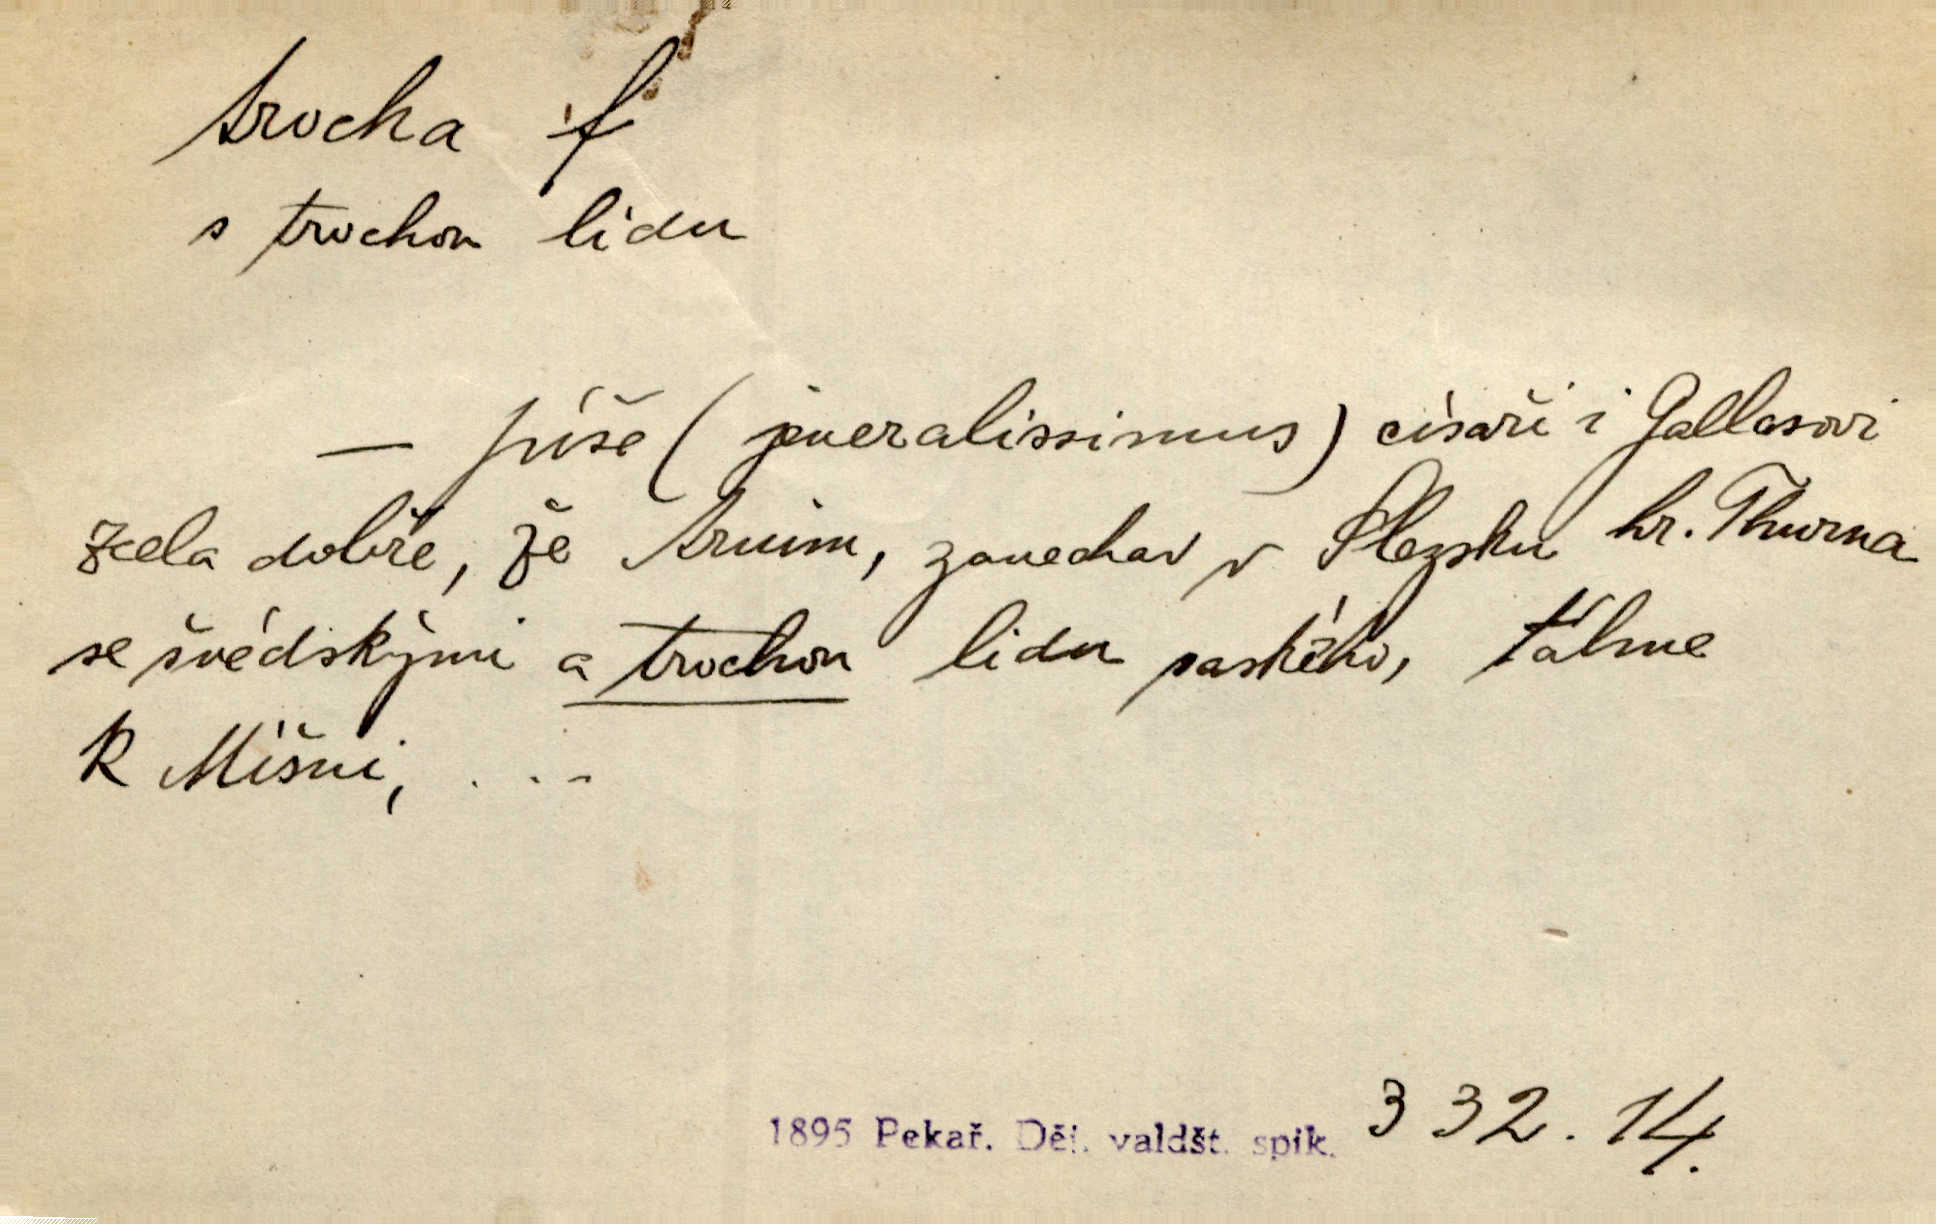 trocha f
s trochou lidu
— píše (generalissimus) císaři i Gallasovi
zcela dobře, že Arnim, zanechav v Slezsku hr. Thurna
se švédskými a trochou lidu saského, táhne
k Míšni, . . -
1895 Pekař. Děj. valdšt. spik. 332. 14.